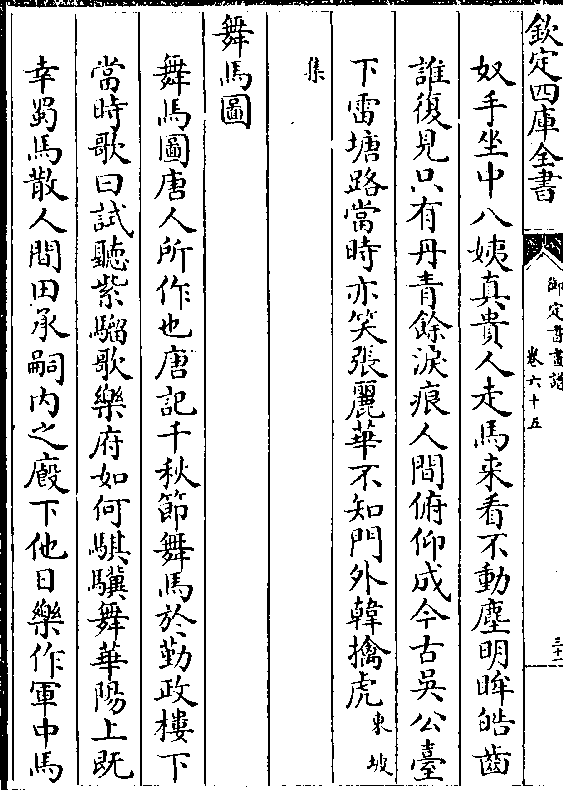 欽定四庫全書
御定書畫譜
卷六十五
三十一
奴手坐中八姨真貴人走馬来看不動塵明眸皓齒
誰復見只有丹青餘淚痕人間俯仰成今古吳公臺
下雷塘路當時亦笑張麗華不知門外韓擒虎東坡
集
舞馬圖
舞馬圖唐人所作也唐記千秋節舞馬於勤政樓下
當時歌曰試聽紫騮歌樂府如何騏驥舞華陽上既
幸蜀馬散人間田承嗣内之廄下他日樂作軍中馬